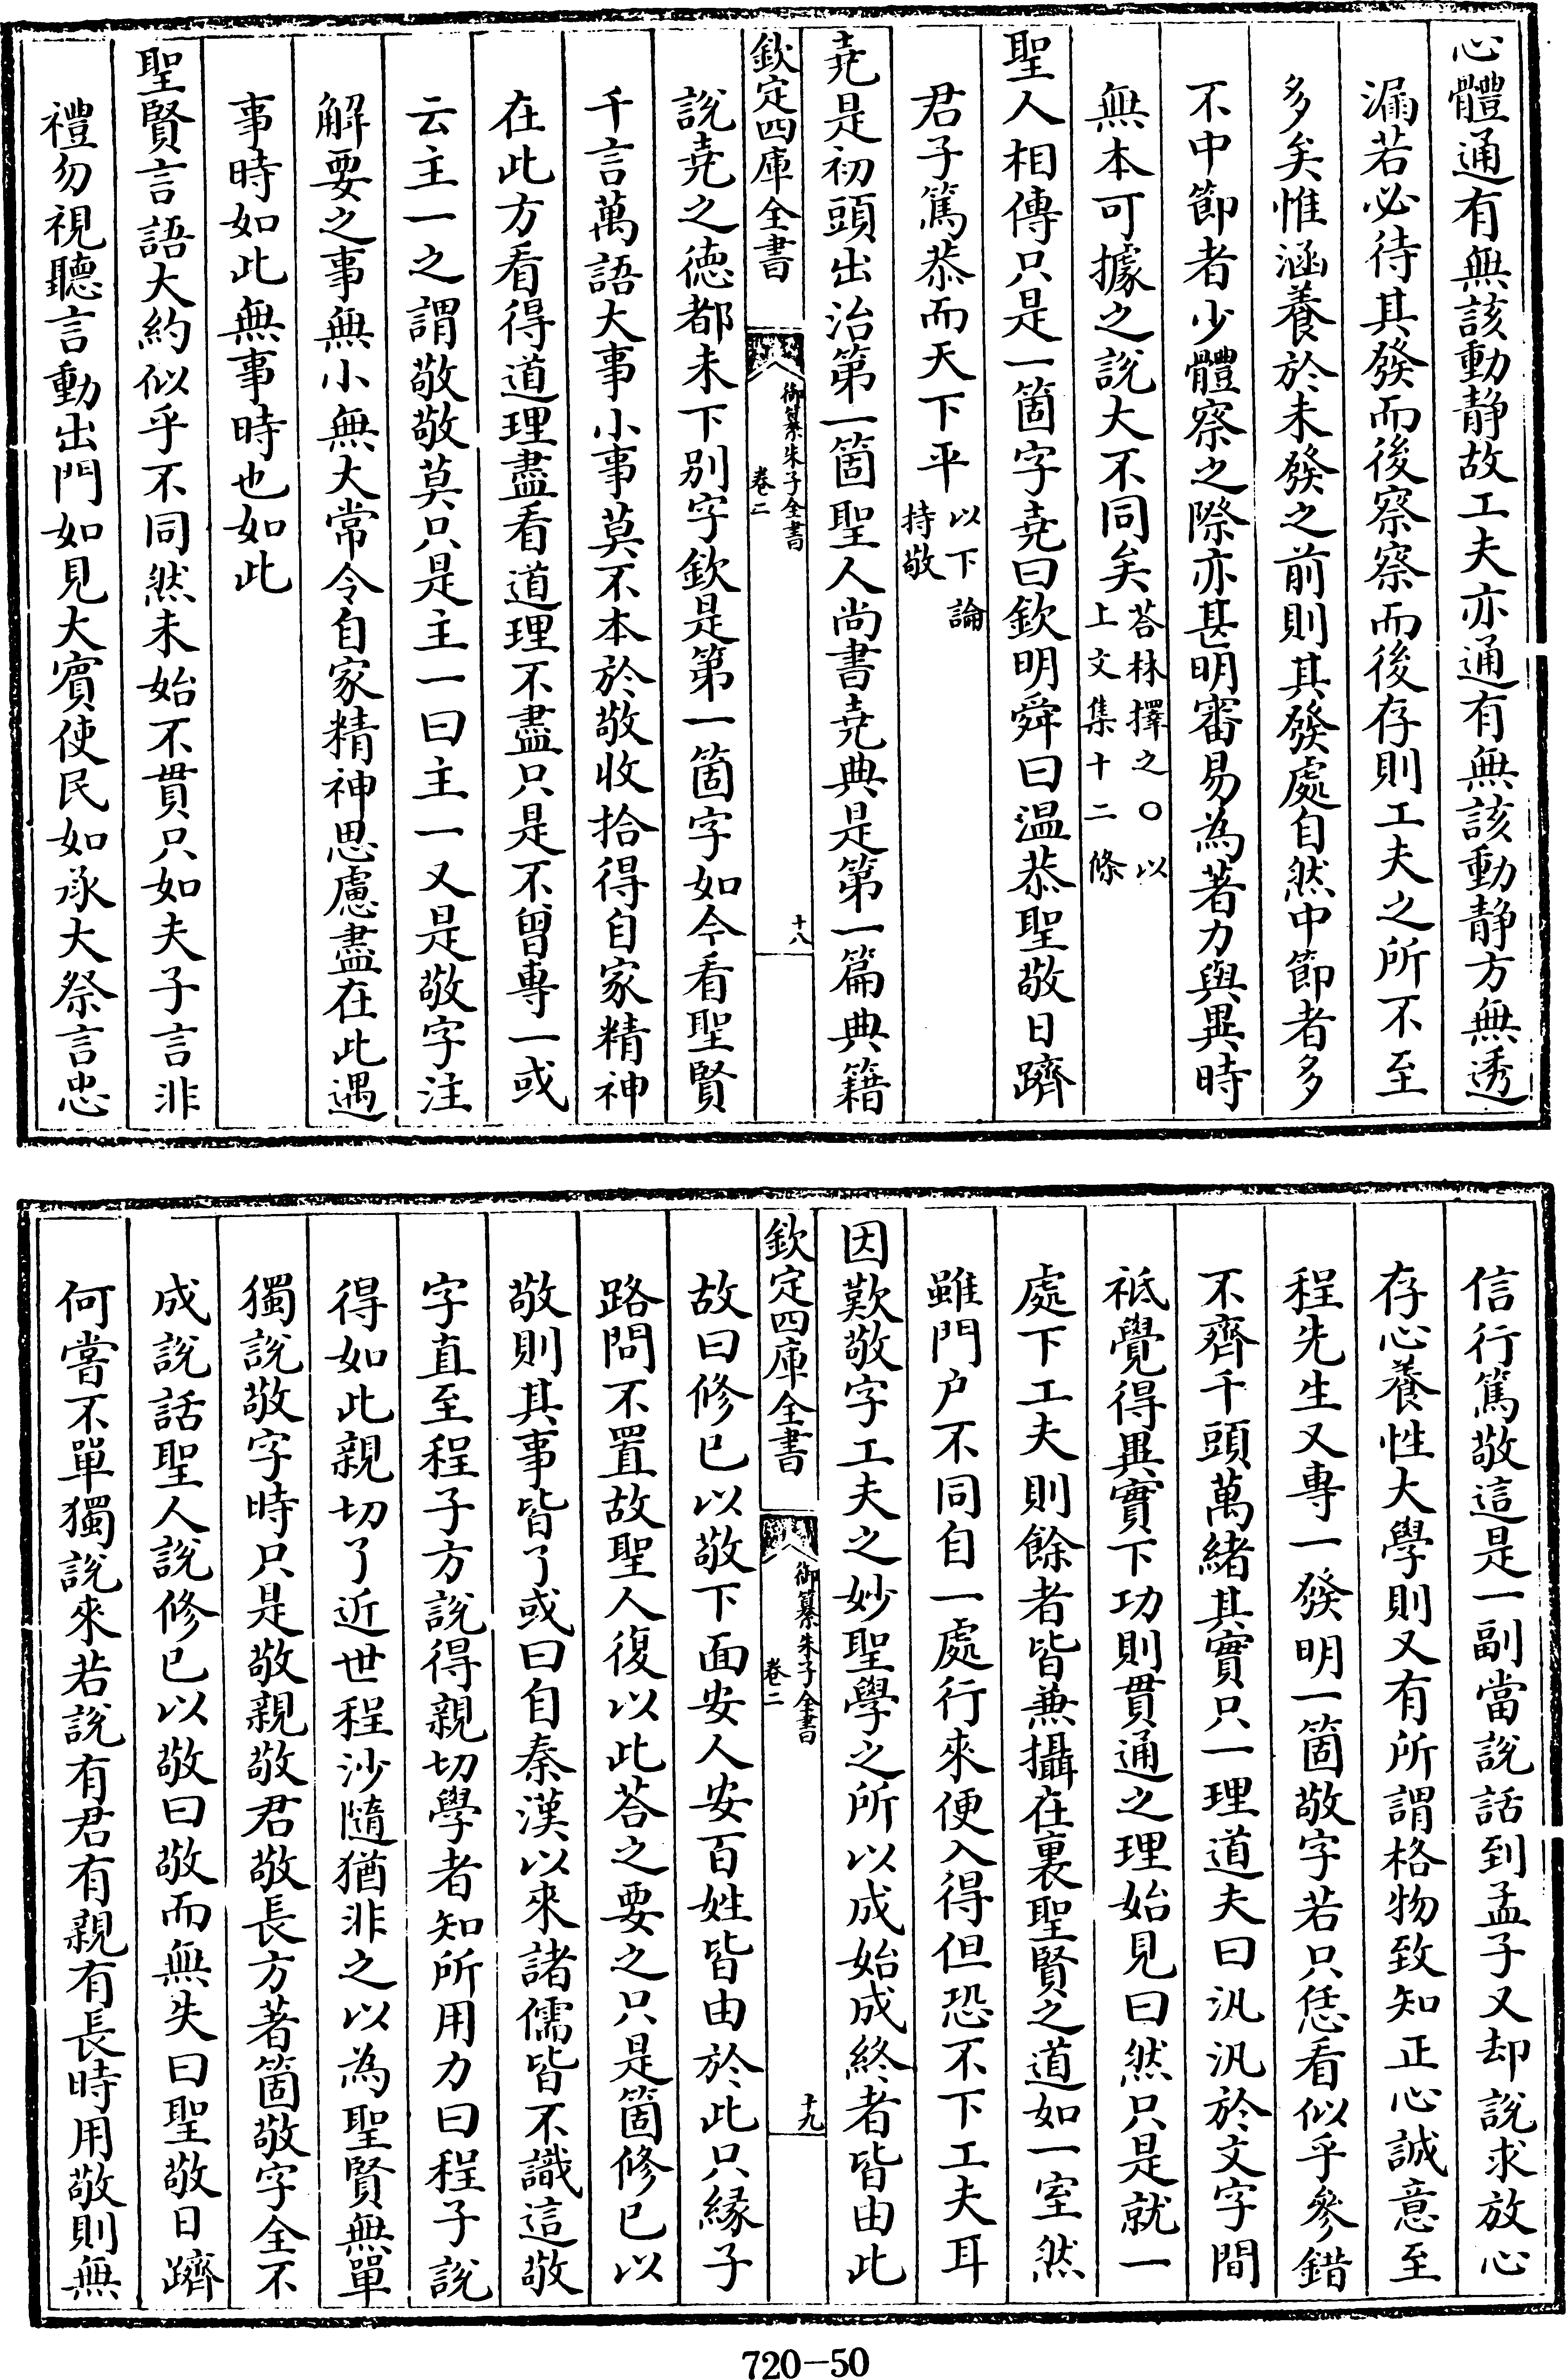 心體通有無該動静故工夫亦通有無該動静方無透
漏若必待其發而後察察而後存則工夫之所不至
多矣惟涵養於未發之前則其發處自然中節者多
不中節者少體察之際亦甚明審易為著力與異時
無本可據之說大不同矣荅林擇之〇以上文集十二條
聖人相傳只是一箇字堯曰欽明舜曰温恭聖敬日躋
君子篤恭而天下平以下論持敬
堯是初頭出治第一箇聖人尚書堯典是第一篇典籍
欽定四庫全書
御纂朱子全書
卷二
十八
說堯之德都未下别字欽是第一箇字如今看聖賢
千言萬語大事小事莫不本於敬收拾得自家精神
在此方看得道理盡看道理不盡只是不曾專一或
云主一之謂敬敬莫只是主一曰主一又是敬字注
解要之事無小無大常令自家精神思慮盡在此遇
事時如此無事時也如此
聖賢言語大約似乎不同然未始不貫只如夫子言非
禮勿視聽言動出門如見大賓使民如承大祭言忠
信行篤敬這是一副當說話到孟子又却說求放心
存心養性大學則又有所謂格物致知正心誠意至
程先生又專一發明一箇敬字若只恁看似乎參錯
不齊千頭萬緒其實只一理道夫曰汎汎於文字間
祇覺得異實下功則貫通之理始見曰然只是就一
處下工夫則餘者皆兼攝在裏聖賢之道如一室然
雖門户不同自一處行來便入得但恐不下工夫耳
因歎敬字工夫之妙聖學之所以成始成終者皆由此
欽定四庫全書
御纂朱子全書
卷二
十九
故曰修已以敬下面安人安百姓皆由於此只緣子
路問不置故聖人復以此荅之要之只是箇修已以
敬則其事皆了或曰自秦漢以來諸儒皆不識這敬
字直至程子方說得親切學者知所用力曰程子說
得如此親切了近世程沙隨猶非之以為聖賢無單
獨說敬字時只是敬親敬君敬長方著箇敬字全不
成說話聖人說修已以敬曰敬而無失曰聖敬日躋
何嘗不單獨說來若說有君有親有長時用敬則無
720-50